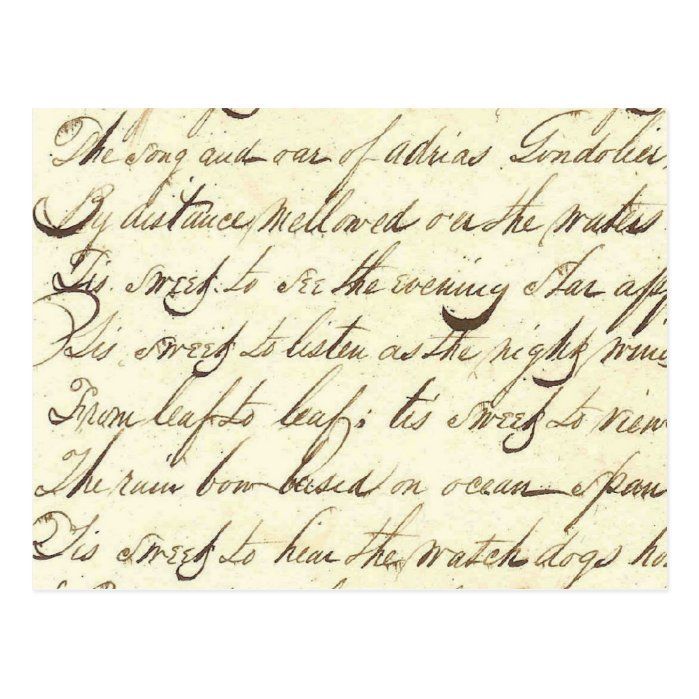 The song and oar of adrias Gondolier,
By distance mellowed oer the waters
Tis sweet to see the evening star app
Tis sweet to listen as the night wind
From leaf to leaf; tis sweet to view
The rain bow based on ocean span
Tis sweet to hear the watch dogs ho